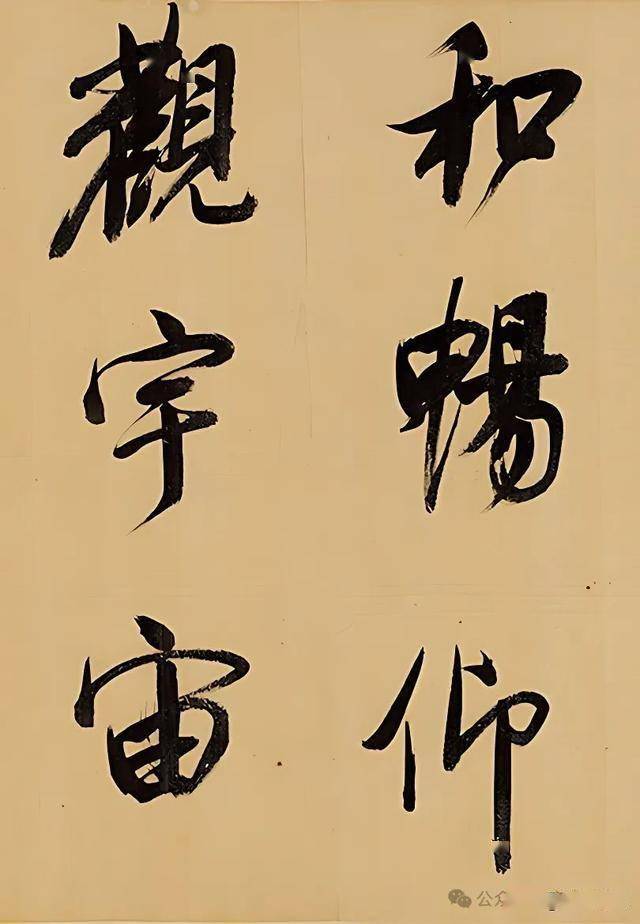 和暢仰
觀宇宙
公众